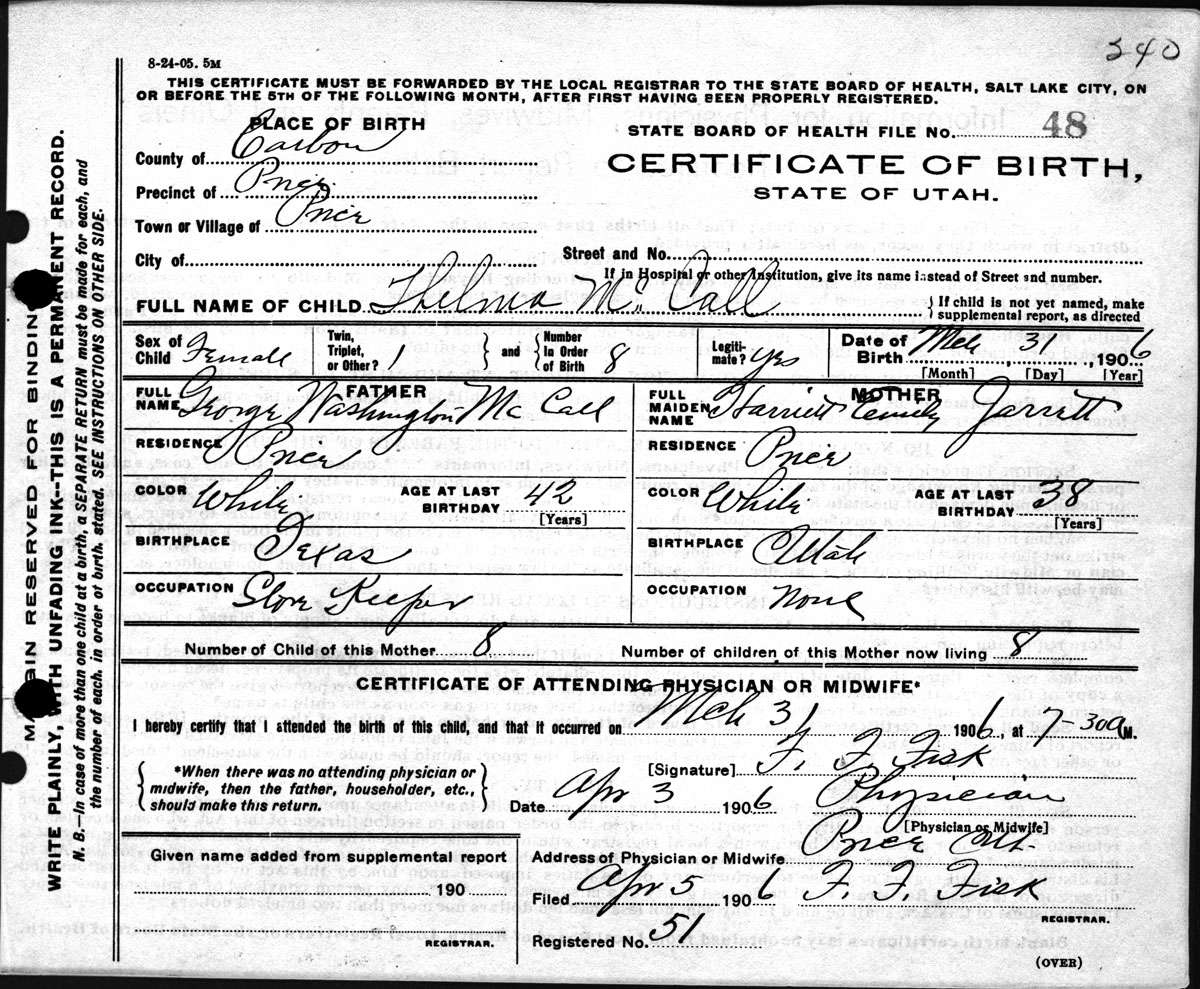 340
8-24-05. 5M
THIS CERTIFICATE MUST BE FORWARDED BY THE LOCAL REGISTRAR TO THE STATE BOARD OF HEALTH, SALT LAKE CITY, ON
OR BEFORE THE 5TH OF THE FOLLOWING MONTH, AFTER FIRST HAVING BEEN PROPERLY REGISTERED.
PLACE OF BIRTH
STATE BOARD OF HEALTH FILE No. 48
County of Carbon
CERTIFICATE OF BIRTH,
Precinct of Price
STATE OF UTAH.
Town or Village of Price
City of
Street and No.
If in Hospital or other Institution, give its name instead of Street and number.
FULL NAME OF CHILD Thelma McCall
If child is not yet named, make supplemental report, as directed
Sex of Child Female Twin, Triplet, or Other? 1 and Number In Order of Birth 8 Legiti-mate? Yes Date of Birth Mch 31, 1906
[Month] [Day] [Year]
FATHER
MOTHER
FULL NAME George Washington McCall
FULL MAIDEN NAME Harriett Garrett
RESIDENCE Price
RESIDENCE Price
COLOR White AGE AT LAST BIRTHDAY 42 [Years]
COLOR White AGE AT LAST BIRTHDAY 38 [Years]
BIRTHPLACE Texas
BIRTHPLACE Utah
OCCUPATION Store Keeper
OCCUPATION None
Number of Child of this Mother 8
Number of children of this Mother now living 8
CERTIFICATE OF ATTENDING PHYSICIAN OR MIDWIFE*
I hereby certify that I attended the birth of this child, and that it occurred on Mch 31 1906, at 7-30a M.
*When there was no attending physician or
midwife, then the father, householder, etc.,
should make this return.
[Signature] F. F. Fisk
Date Apr 3 1906 Physician
[Physician or Midwife]
Given name added from supplemental report
190
REGISTRAR.
Address of Physician or Midwife Price Ut.
Filed Apr 5 1906 F. F. Fisk
REGISTRAR.
Registered No. 51
(OVER)
MARGIN RESERVED FOR BINDING
WRITE PLAINLY, WITH UNFADING INK—THIS IS A PERMANENT RECORD.
N. B.—In case of more than one child at a birth, a SEPARATE RETURN must be made for each, and
the number of each, in order of birth, stated. SEE INSTRUCTIONS ON OTHER SIDE.